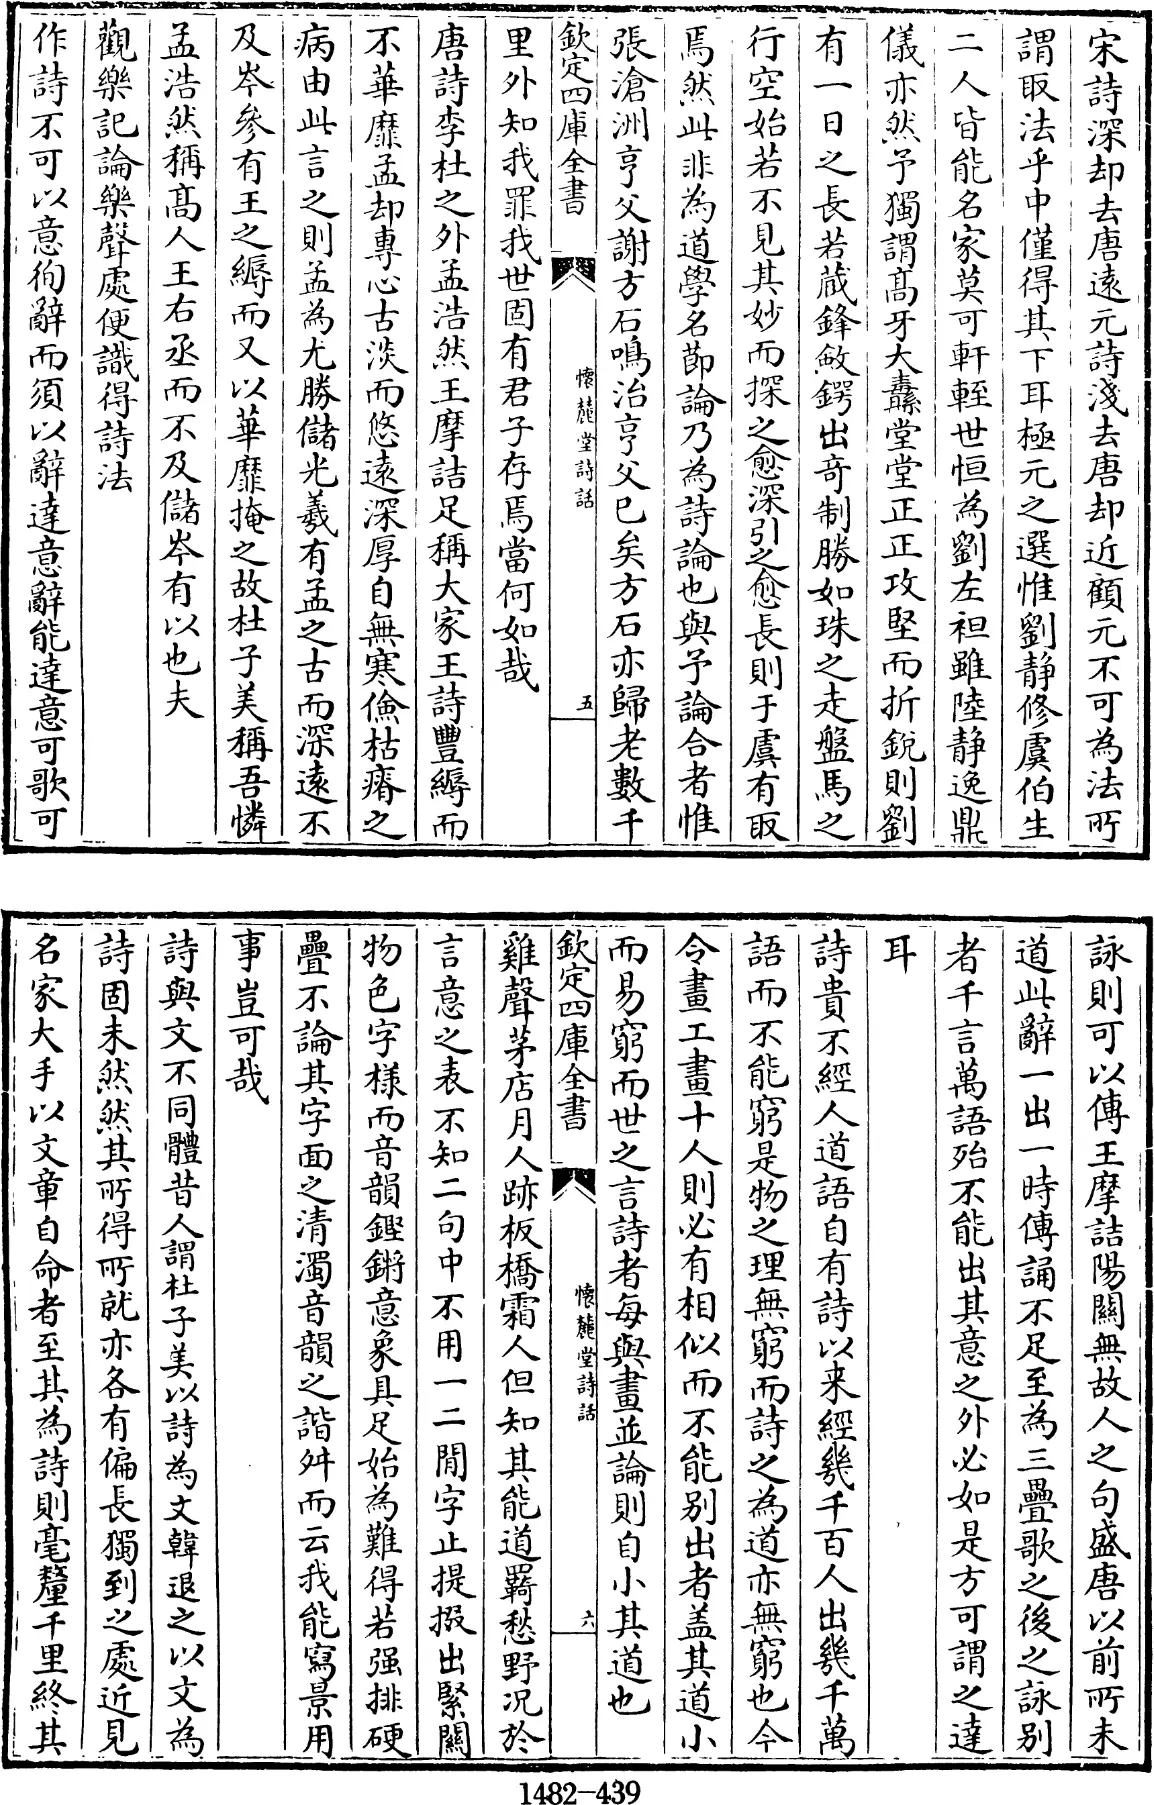 宋詩深却去唐遠元詩淺去唐却近顧元不可為法所
謂取法乎中僅得其下耳極元之選惟劉静修虞伯生
二人皆能名家莫可軒輊世恒為劉左袒雖陸静逸鼎
儀亦然予獨謂髙牙大纛堂堂正正攻堅而折銳則劉
有一日之長若蔵鋒斂鍔出奇制勝如珠之走盤馬之
行空始若不見其妙而探之愈深引之愈長則于虞有取
焉然此非為道學名節論乃為詩論也與予論合者惟
張滄洲亨父謝方石鳴治亨父已矣方石亦歸老數千
欽定四庫全書
懷麓堂詩話
五
里外知我罪我世固有君子存焉當何如哉
唐詩李杜之外孟浩然王摩詰足稱大家王詩豐縟而
不華靡孟却專心古淡而悠遠深厚自無寒儉枯瘠之
病由此言之則孟為尤勝儲光羲有孟之古而深遠不
及岑參有王之縟而又以華靡掩之故杜子美稱吾憐
孟浩然稱髙人王右丞而不及儲岑有以也夫
觀樂記論樂聲處便識得詩法
作詩不可以意徇辭而須以辭達意辭能達意可歌可
詠則可以傳王摩詰陽關無故人之句盛唐以前所未
道此辭一出一時傳誦不足至為三疊歌之後之詠别
者千言萬語殆不能出其意之外必如是方可謂之達
耳
詩貴不經人道語自有詩以来經幾千百人出幾千萬
語而不能窮是物之理無窮而詩之為道亦無窮也今
令畫工畫十人則必有相似而不能别出者盖其道小
而易窮而世之言詩者每與畫並論則自小其道也
欽定四庫全書
懷麓堂詩話
六
雞聲茅店月人跡板橋霜人但知其能道羇愁野况於
言意之表不知二句中不用一二閒字止提掇出緊關
物色字樣而音韻鏗鏘意象具足始為難得若强排硬
疊不論其字面之清濁音韻之諧舛而云我能寫景用
事豈可哉
詩與文不同體昔人謂杜子美以詩為文韓退之以文為
詩固未然然其所得所就亦各有偏長獨到之處近見
名家大手以文章自命者至其為詩則毫釐千里終其
1482-439